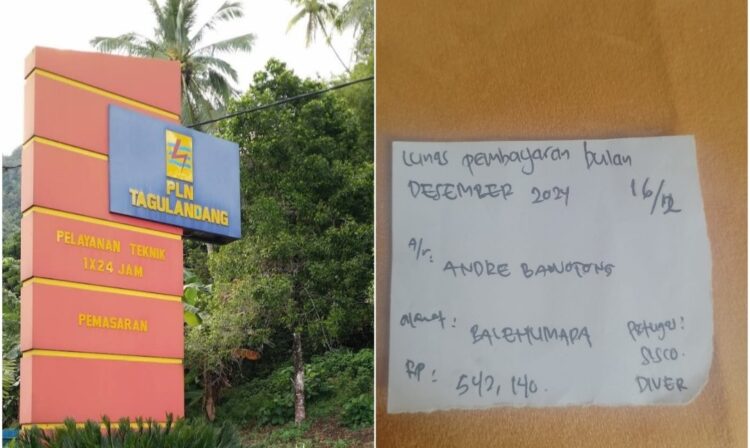 PLN
TAGULANDANG
PELAYANAN TEKNIK
1X24 JAM
PEMASARAN
Lunas pembayaran bulan
DESEMBER 2024 16/12
A/n: ANDRE BAWOTONG
Alamat: BALEHUMARA
Petugas:
SISCO.
Rp: 542,140.
DIVER